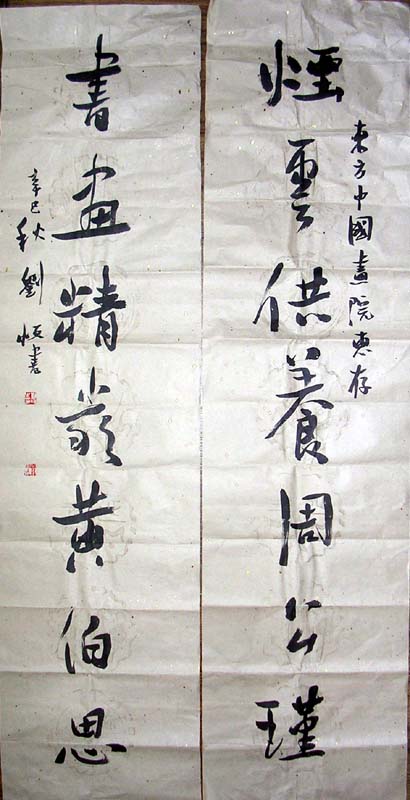 東方中國畫院惠存
煙雲供養周公瑾
書畫精嚴黃伯思
辛巳秋劉恒書